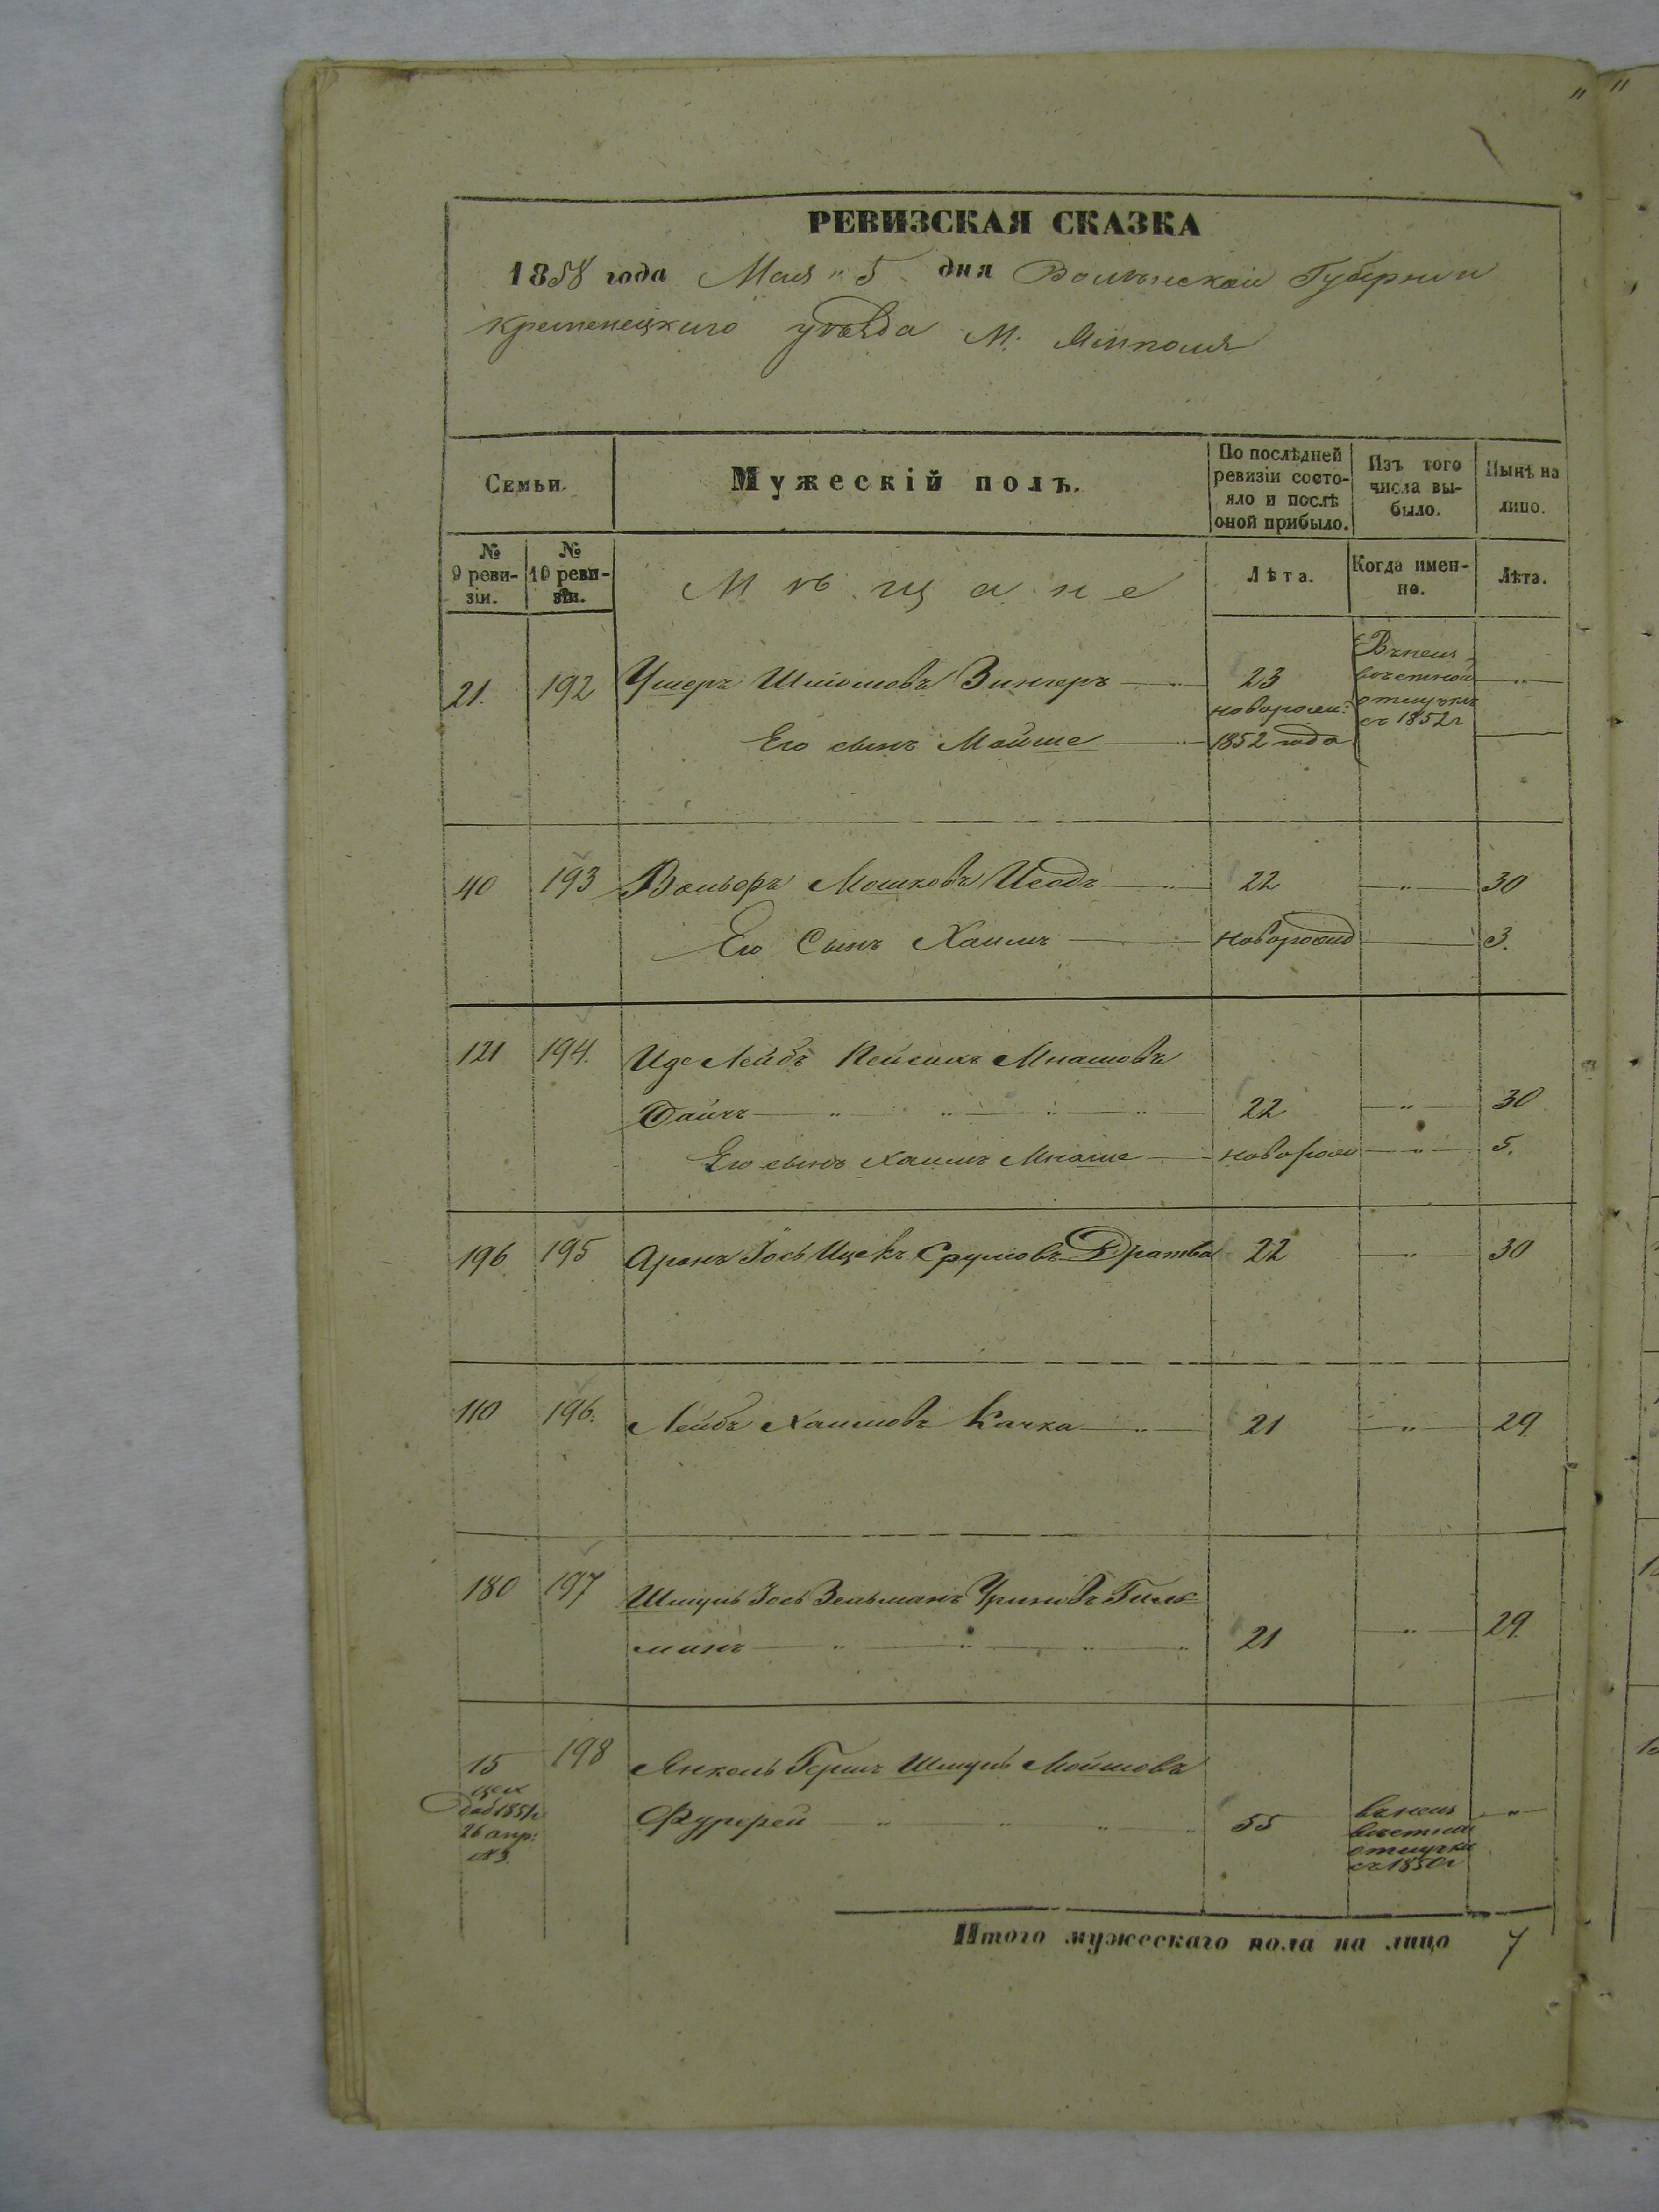 РЕВИЗСКАЯ СКАЗКА
1858 года Мая 5 дня Волынской Губернии
Кременецкаго уѣзда М. Ямполя
Семьи.
Мужескій полъ.
По послѣдней ревизіи состо-яло и послѣ оной прибыло.
Изъ того числа вы-было.
Нынѣ на лицо.
№ 9 реви-зіи.
№ 10 реви-зіи.
Мѣщане
Лѣта.
Когда имен-но.
Лѣта.
21. 192 Ушеръ Шліомовъ Зингеръ 23
Его сынъ Мойше новорожд: 1852 года
отлучкѣ
съ 1852 г
40 193 Вольфъ Мошковъ 22 " 30
Его Сынъ Хаимъ новорожд 3.
121 194. Иде Лейбъ Пейсихъ Мнашовъ
22 " 30
Его сынъ Хаимъ Мнаше новорожд " 5.
196 195 Аронъ Іось Ицекъ Срулiовъ Дратва 22 " 30
110 196. Лейбъ Хаимовъ Качка " 21 " 29.
180 197 Шмуль Іось Зельманъ Гиль
манъ 21 " 29.
15 198 Янкель Гершъ Шмуль Мойшовъ
цех
доб 1851 г
26 апр:
№ 3.
55
отлучки
съ 1850 г
"
Итого мужескаго пола на лицо 7